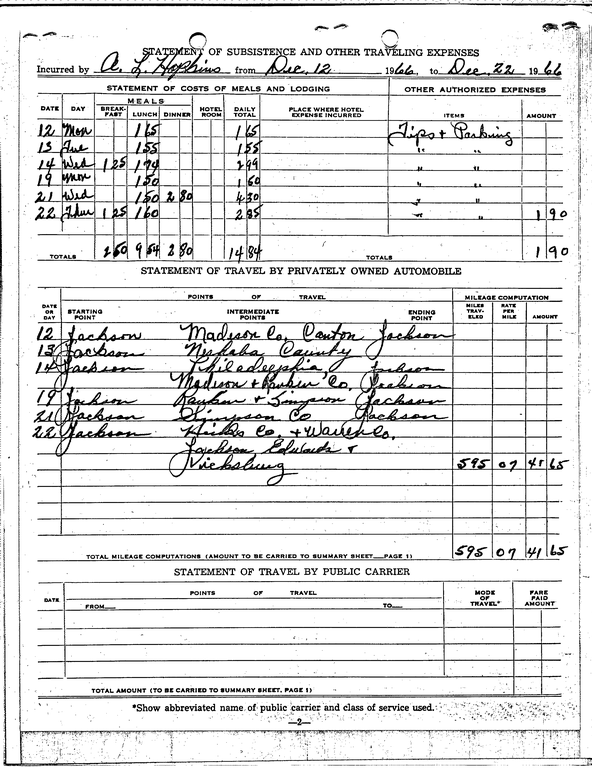 STATEMENT OF SUBSISTENCE AND OTHER TRAVELING EXPENSES
Incurred by A. L. Hopkins from Dec. 12 1966, to Dec. 22 1966
STATEMENT OF COSTS OF MEALS AND LODGING OTHER AUTHORIZED EXPENSES
MEALS
DATE DAY BREAK-FAST LUNCH DINNER HOTEL ROOM DAILY TOTAL PLACE WHERE HOTEL EXPENSE INCURRED ITEMS AMOUNT
12 Mon 1 65 1 65 Tips & Parking
13 Tue 1 55 1 55 " "
14 Wed 1 25 1 74 2 99 " "
19 Mon 1 50 1 50 " "
21 Wed 1 50 2 80 4 30 " "
22 Thur 1 25 1 60 2 85 " " 1 90
TOTALS 2 50 9 54 2 80 14 84 TOTALS 1 90
STATEMENT OF TRAVEL BY PRIVATELY OWNED AUTOMOBILE
POINTS OF TRAVEL MILEAGE COMPUTATION
DATE OR DAY STARTING POINT INTERMEDIATE POINTS ENDING POINT MILES TRAV-ELED RATE PER MILE AMOUNT
12 Jackson Madison Co, Canton Jackson
13 Jackson Neshoba County
14 Jackson Philadelphia Jackson
Madison & Rankin Co, Jackson
19 Jackson Rankin & Simpson Jackson
21 Jackson Simpson Co Jackson
22 Jackson Hinds Co. & Warren Co.
Jackson, Edwards &
Vicksburg 595 07 41 65
TOTAL MILEAGE COMPUTATIONS (AMOUNT TO BE CARRIED TO SUMMARY SHEET__PAGE 1) 595 07 41 65
STATEMENT OF TRAVEL BY PUBLIC CARRIER
DATE POINTS OF TRAVEL MODE OF TRAVEL* FARE PAID AMOUNT
FROM__ TO__
TOTAL AMOUNT (TO BE CARRIED TO SUMMARY SHEET, PAGE 1)
*Show abbreviated name of public carrier and class of service used.
—2—